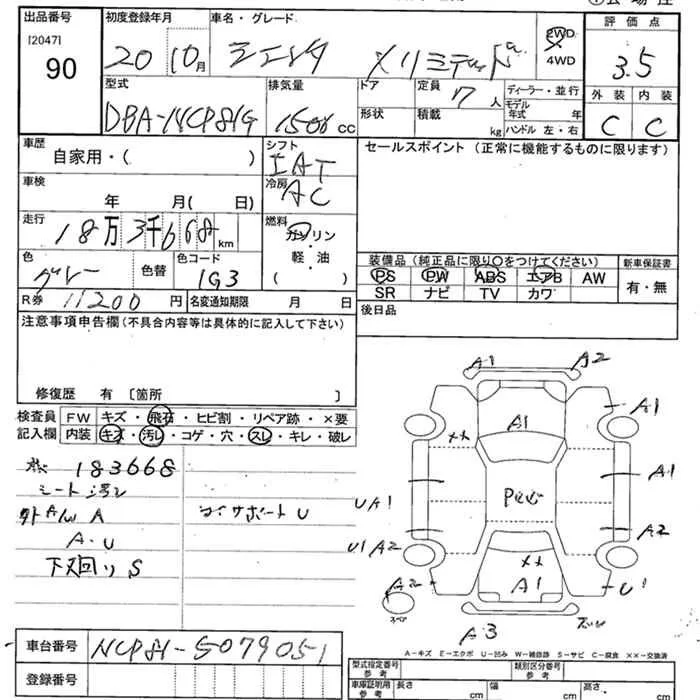 出品番号
[2047]
90
初度登録年月
20 10月
車名・グレード
シエンタ Xリミテッド
2WD
4WD
評価点
3.5
型式
DBA-NCP81G
排気量
1500 cc
ドア
形状
定員
7人
積載
kg
ディーラー・並行
モデル
年式 年
ハンドル 左・右
外装 内装
C C
車歴
自家用・( )
シフト
IAT
冷房
AC
セールスポイント(正常に機能するものに限ります)
車検
年 月( 日)
走行
18万3千668km
燃料
ガソリン
軽・油
( )
色
グレー
色替
色コード
1G3
装備品(純正品に限り○をつけてください)
PS PW ABS エアB AW
SR ナビ TV カワ
新車保証書
有・無
R券 11200円
名変通知期限 月 日
後日品
注意事項申告欄(不具合内容等は具体的に記入して下さい)
修復歴 有 [箇所 ]
検査員
記入欄
FW キズ・飛石・ヒビ割・リペア跡・×要
内装 キズ・汚レ・コゲ・穴・スレ・キレ・破レ
183668
シート汚レ
A
A・U
下廻りS
コアサポートU
A1
A2
A1
A1
××
A1
UA1
A2
U1 A2
××
A1
A2
U1
スペア
A3
A-キズ E-エクボ U-凹み W-補修跡 S-サビ C-腐食 ××-交換済
車台番号
NCP81-5079051
登録番号
型式指定番号
参考
類別区分番号
参考
車庫証明用
参考
長さ cm
幅 cm
高さ cm